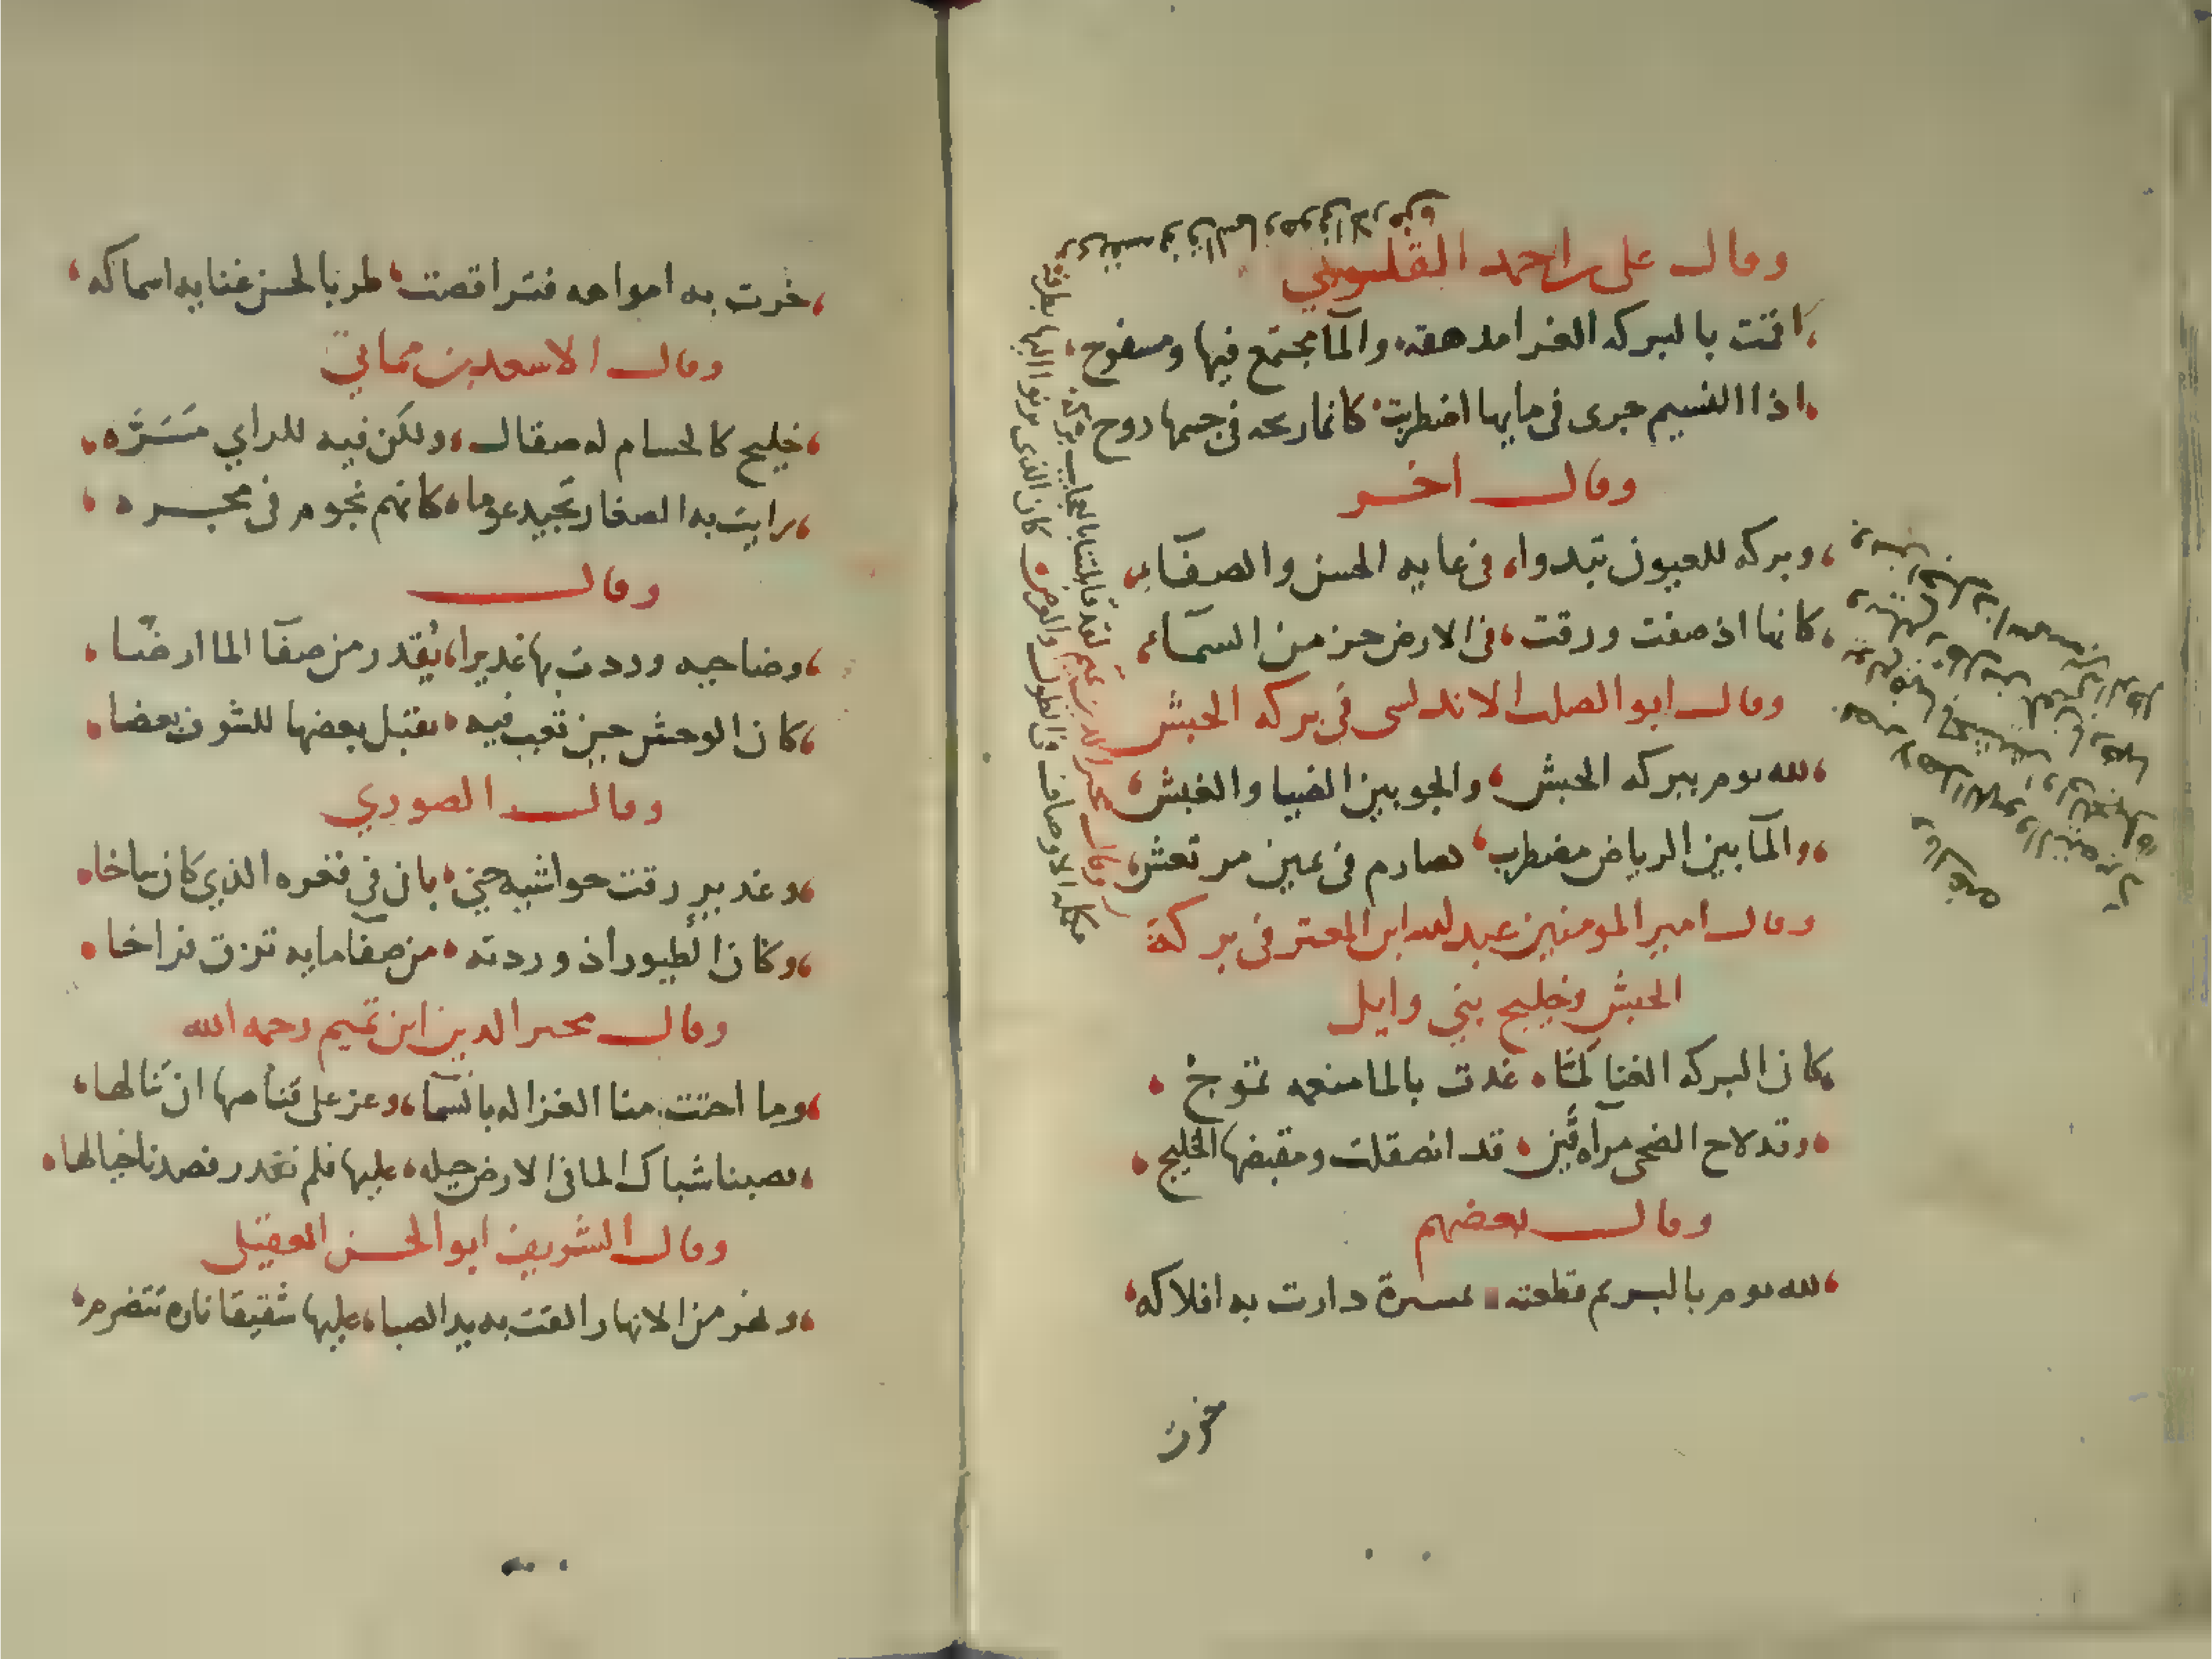 وقال علي بن احمد القليوبي
انت بالبركه الغرا مدهقه والمآ مجتمع فيها ومسفوح
اذا النسيم جرى فى مايها اضطربت كانما ريحه فى جسمها روح
وقال اخر
وبركه للعيون تبدوا فى غايه الحسن والصفآء
كانها اذ صفت ورقت فى الارض جز من السمآء
وقال ابو الصلت الاندلسى فى بركه الحبش
لله يوم ببركه الحبش والجو بين الضيا والغبش
والمآ بين الرياض مضطرب كصارم فى يمين مرتعش
وقال امير المومنين عبد لله ابن المعتز فى بركة
الحبش وخليج بني وايل
كان البركه الغنا لمّا غدت بالما منعمه تموج
وقد لاح الضحى مرآه قين قد انصقلت ومقبضها الخليج
وقال بعضهم
لله يوم باليم قطعته بمسرة دارت به افلاكه
خرت
وقال مجير الدين بن تميم لقد قابلتنا بالعجايب بركة
مكملة الاوصاف فى الطول والعرض كان الذى يرنو اليها بطرفه
يرى نفسه فوق السما وهو فى الارض
وقال غيره
خرت به امواهه فتراقصت طربا لحسن غنايه اسماكه
وقال الاسعد بن مماتي
خليج كالحسام له صقال ولكن فيه للراي مَسَرّه
رايت به الصغار تجيد عوما كانهم نجوم فى مجره
وقال
وضاحيه وردت بها غديرا يُقدر من صفآ الما ارضا
كان الوحش حين تعب فيه يقبل بعضها للشوق بعضا
وقال الصوري
وغدير رقت حواشيه حتى بان فى قعره الذي كان ساخا
وكان الطيور اذ وردته من صفآ مايه تزق فراخا
وقال مجير الدين ابن تميم رحمه الله
وما احتت منا الغزاله بالسمآ وعز على قناصها ان ينالها
نصبنا شباك الما فى الارض حيله عليها فلم نقدر فصدنا خيالها
وقال الشريف ابو الحسن العقيلي
ونهر من الانهار القت به يد الصبا عليها شقيقا ناره تتضرم